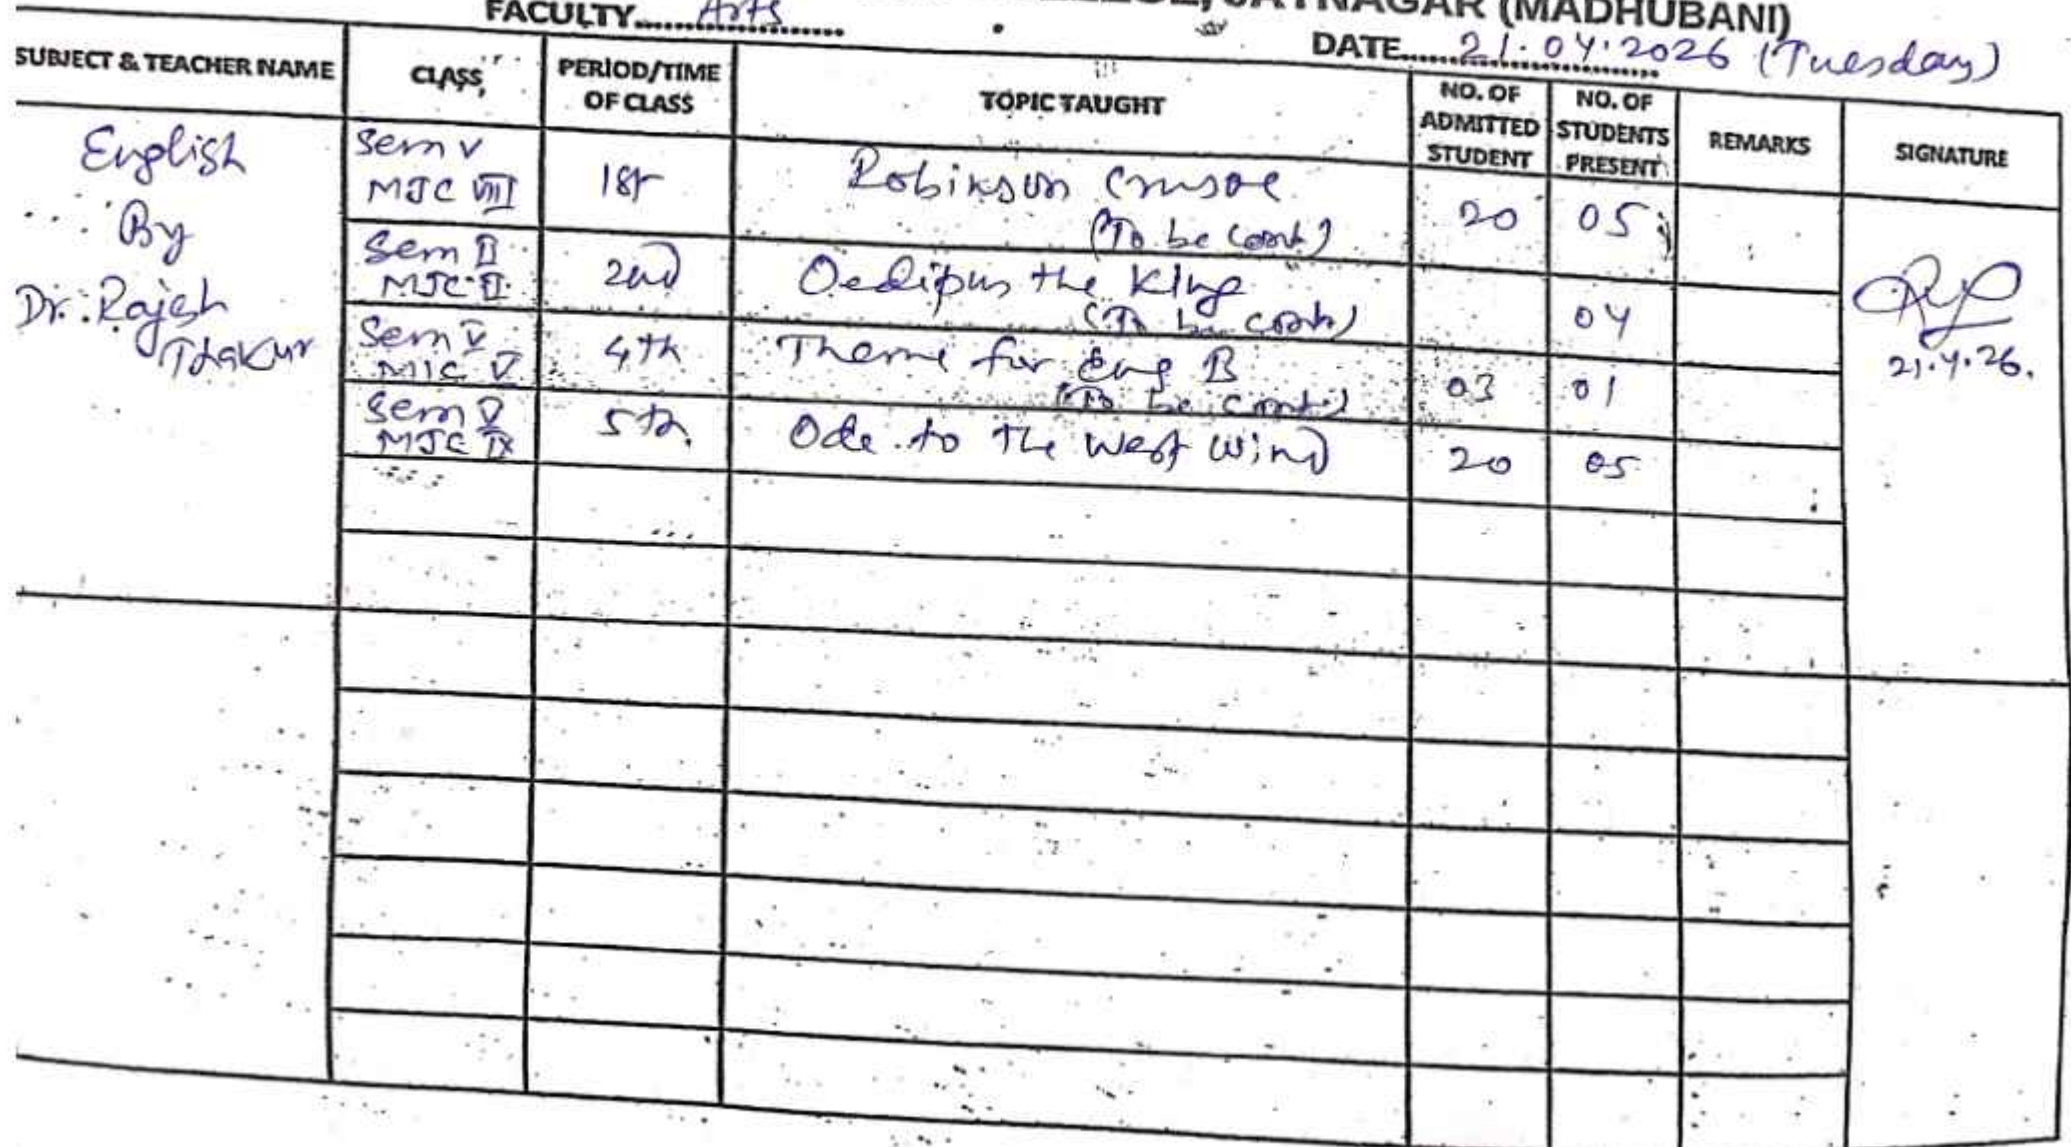 JAYNAGAR (MADHUBANI)
FACULTY......Arts......
DATE......21.04.2026 (Tuesday)
SUBJECT & TEACHER NAME
CLASS
PERIOD/TIME
OF CLASS
TOPIC TAUGHT
NO. OF
ADMITTED
STUDENT
NO. OF
STUDENTS
PRESENT
REMARKS
SIGNATURE
English
By
Dr. Rajesh
Thakur
Sem V
MJC VIII
1st
Robinson Crusoe
(To be cont)
20
05
Sem II
MJC II
2nd
Oedipus the King
(To be cont)
04
Sem V
MIC V
4th
Theme for Eng B
(To be cont)
03
01
Sem V
MJC IX
5th
Ode to the West Wind
20
05
21.4.26.